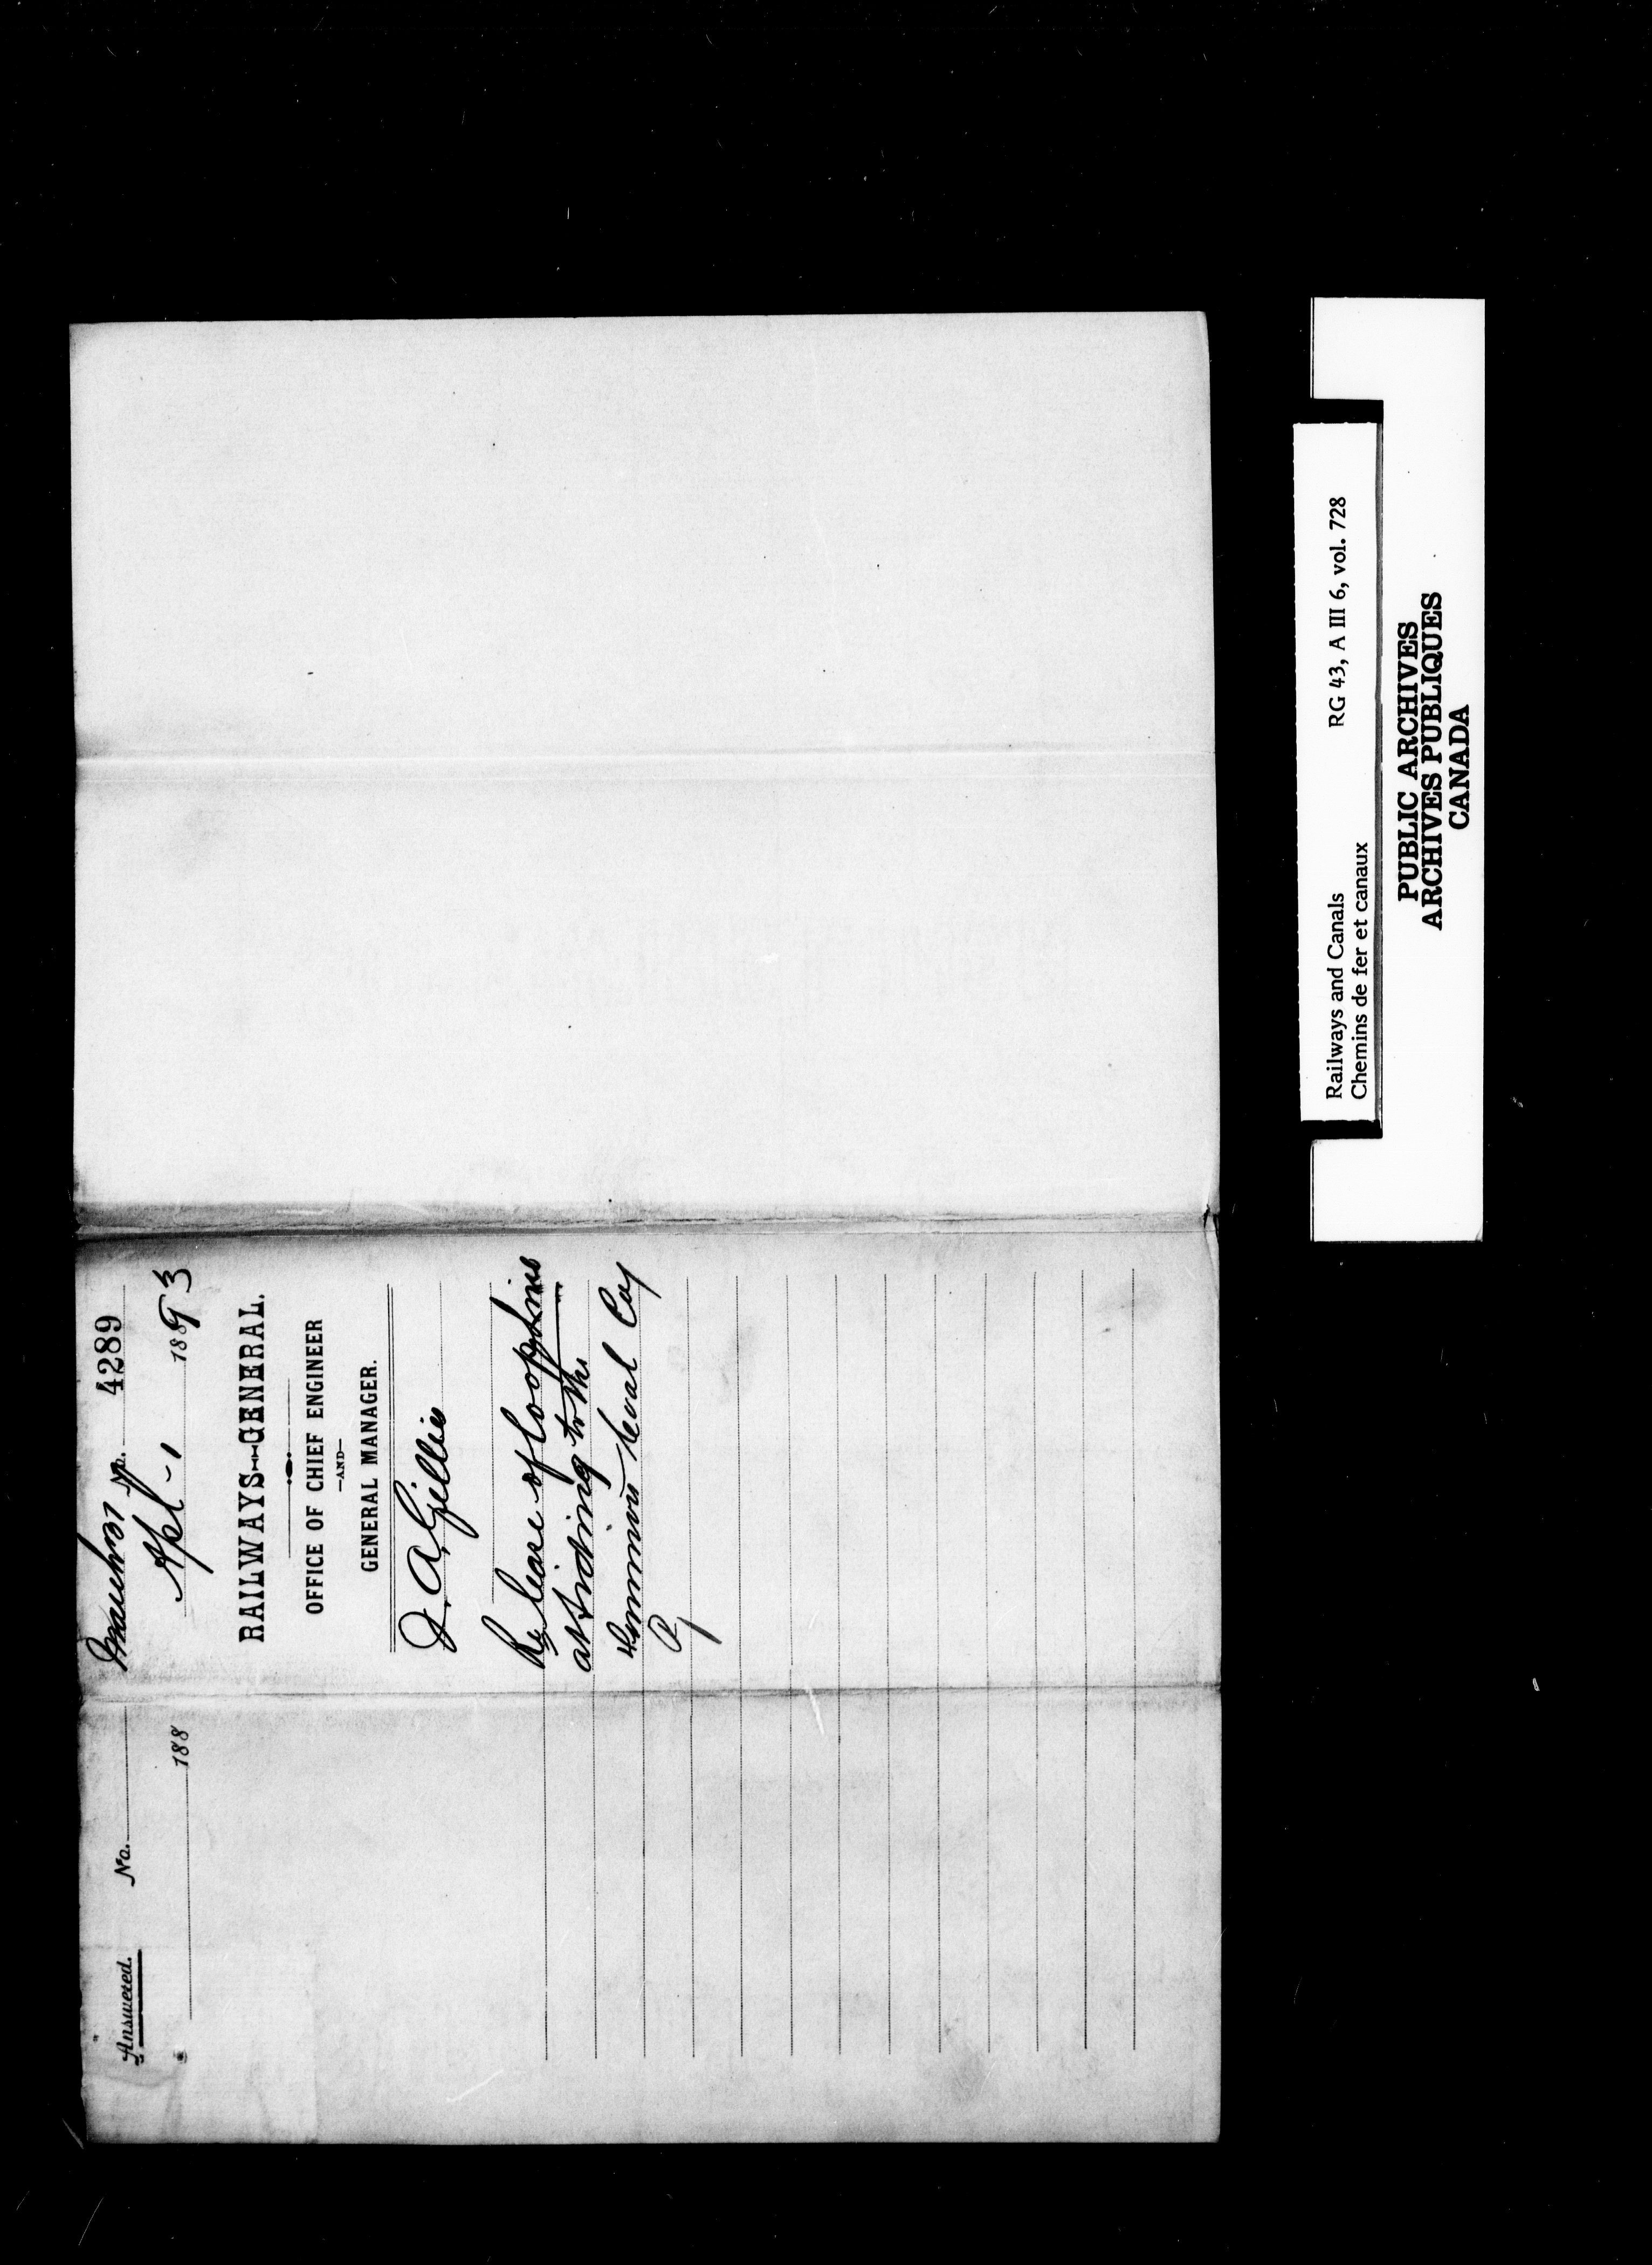 March 31 No. 4289
Apl - 1 1893
RAILWAYS—GENERAL.
OFFICE OF CHIEF ENGINEER
—AND—
GENERAL MANAGER.
J. A. Gillies
Re lease of loop line
at siding to the
Dominion Coal Coy
Answered. No.
188
Railways and Canals RG 43, A III 6, vol. 728
Chemins de fer et canaux
PUBLIC ARCHIVES
ARCHIVES PUBLIQUES
CANADA